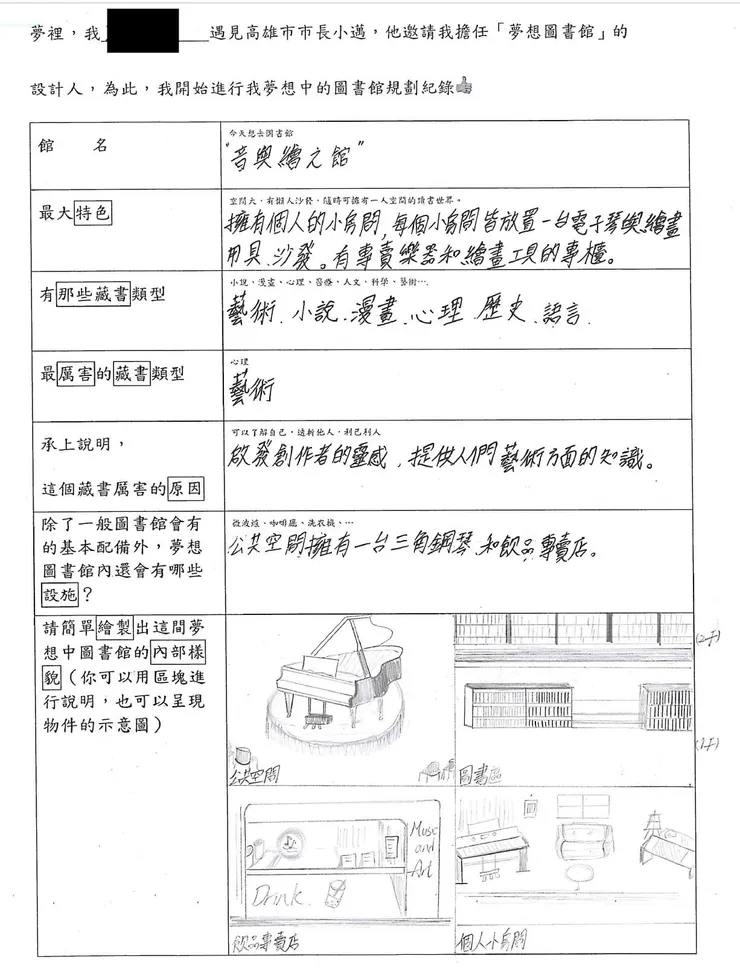 夢裡，我 遇見高雄市市長小邁，他邀請我擔任「夢想圖書館」的
設計人，為此，我開始進行我夢想中的圖書館規劃紀錄👍
館　　名
今天想去圖書館
"音與繪之館"
最大特色
空間大，有懶人沙發，隨時可擁有一人空間的讀書世界。
擁有個人的小房間,每個小房間皆放置一台電子琴與繪畫
用具、沙發。有專賣樂器和繪畫工具的專櫃。
有那些藏書類型
小說、漫畫、心理、醫療、人文、科學、藝術…
藝術、小說、漫畫、心理、歷史、語言.
最厲害的藏書類型
心理
藝術
承上說明，
這個藏書厲害的原因
可以了解自己，透析他人，利己利人
啟發創作者的靈感，提供人們藝術方面的知識。
除了一般圖書館會有
的基本配備外，夢想
圖書館內還會有哪些
設施？
微波爐、咖啡廳、洗衣機、…
公共空間擁有一台三角鋼琴、和飲品專賣店。
請簡單繪製出這間夢
想中圖書館的內部樣
貌（你可以用區塊進
行說明，也可以呈現
物件的示意圖）
公共空間
(2F)
(1F)
圖書區
Music
and
Art
Drink
飲品專賣店
個人小房間